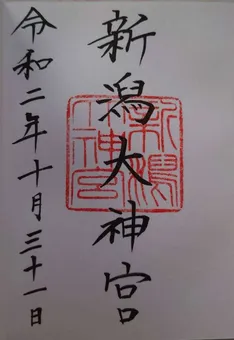 新潟大神宮
令和二年十月三十一日
新潟
大神宮